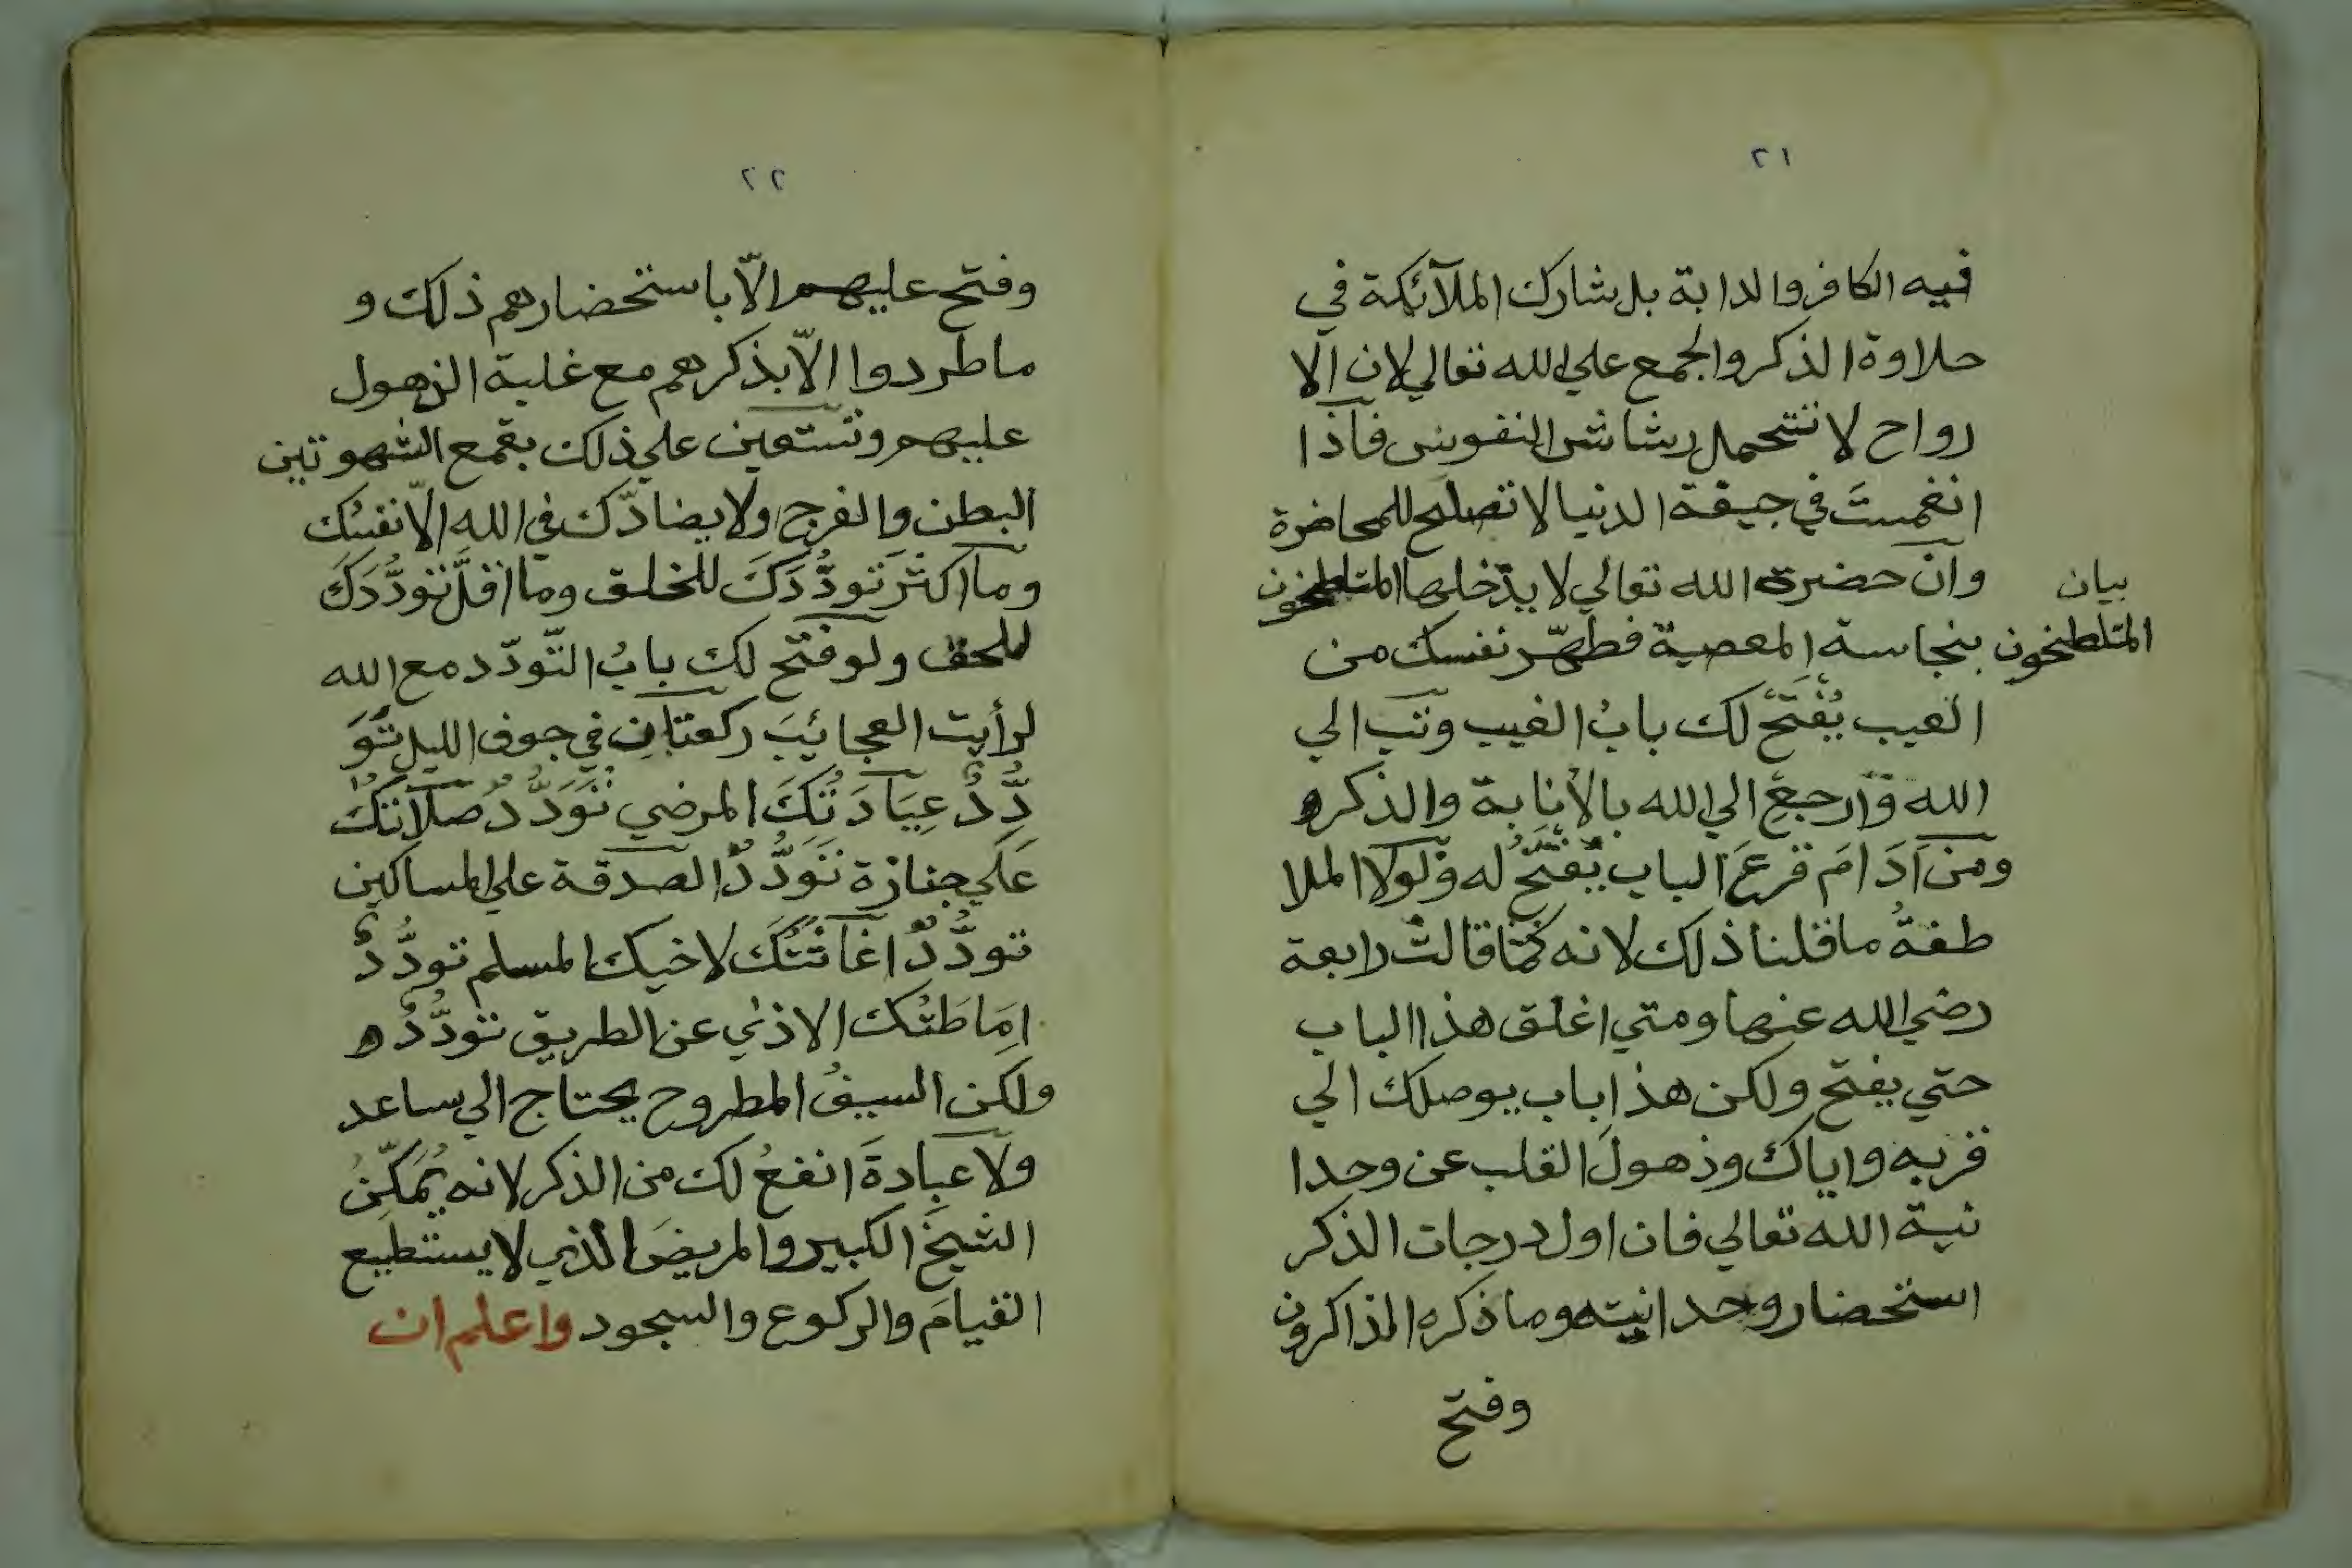 ٢١
فيه الكافر والدابة بل شارك الملآئكة في
حلاوة الذكر والجمع علي الله تعالي لان الا
رواح لا تتحمل رشاش النفوس فاذا
انغمستَ في جيفة الدنيا لا تصلح للمحاضرة
وان حضرة الله تعالي لا يدخلها المتلطخون
بيان
المتلطخون
بنجاسة المعصية فطهّر نفسك من
العيب يُفْتَحْ لك بابُ الغيب وتب الي
الله وَارجعْ الي الله بالأنابة والذكر
ومن اَدَامَ قرعَ الباب يُفْتَحُ له ولولا الملا
طفةُ ما قلنا ذلك لانه كما قالتْ رابعة
رضي الله عنها ومتي اغلق هذا الباب
حتي يفتح ولكن هذا باب يوصلك الي
قربه واياك وذهولَ القلب عن وحدا
نية الله تعالي فان اول درجات الذكر
استحضار وحدانيته وما ذكره الذاكرون
وفتح
٢٢
وفتح عليهم الّا باستحضارهم ذلك و
ما طردوا الّا بذكرهم مع غلبة الذهول
عليهم وتستعين علي ذلك بقمع الشهوتين
البطن والفرج ولا يضادّك في الله الّا نفسُك
وما اكثرَ تودُّدَكَ للخلق وما اقلَّ تودُّدَكَ
للحق ولو فتح لك بابُ التّودّد مع الله
لرأيت العجائبَ ركعتانِ في جوف الليل تَوَ
دُّدٌ عِيَادَتُكَ المرضي تَوَدُّدٌ صلاتُكَ
عَلَي جنازة تَوَدُّدٌ الصدقة علي المساكين
تودُّدٌ اغاثتُكَ لاخيك المسلم تودُّدٌ
اِمَاطَتُك الاذي عن الطريق تودُّدٌ
ولكن السيفُ المطروح يحتاج الي ساعد
ولا عبادةَ انفعُ لك من الذكر لانه يُمَكِّنُ
الشيخَ الكبير والمريضَ الذي لا يستطيع
القيامَ والركوع والسجود واعلم ان